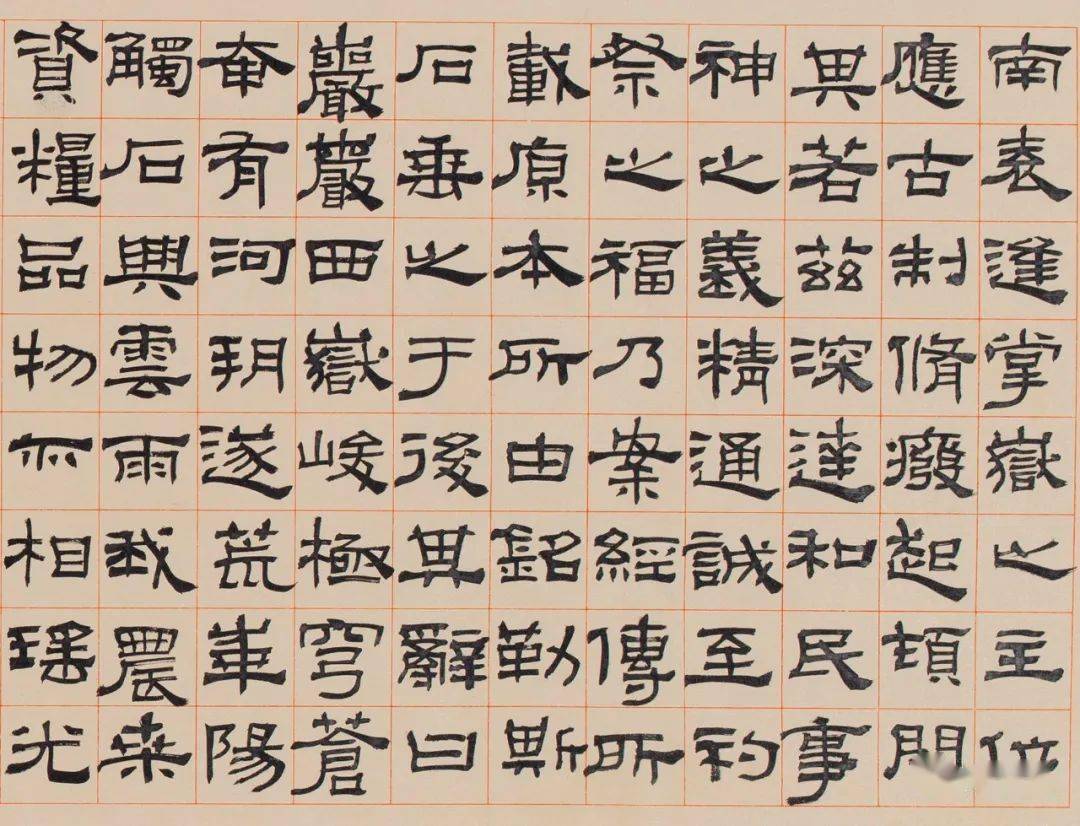 南袁逢掌嶽之主位
應古制脩癈起頓
其若茲深達和民事
神之義精通誠至礿
祭之福乃案經傳所
載原本所由銘勒斯
石垂之于後其辭曰
巖巖西嶽峻極穹蒼
奄有河朔遂荒華陽
觸石興雲雨我農桑
資糧品物亦相瑤光